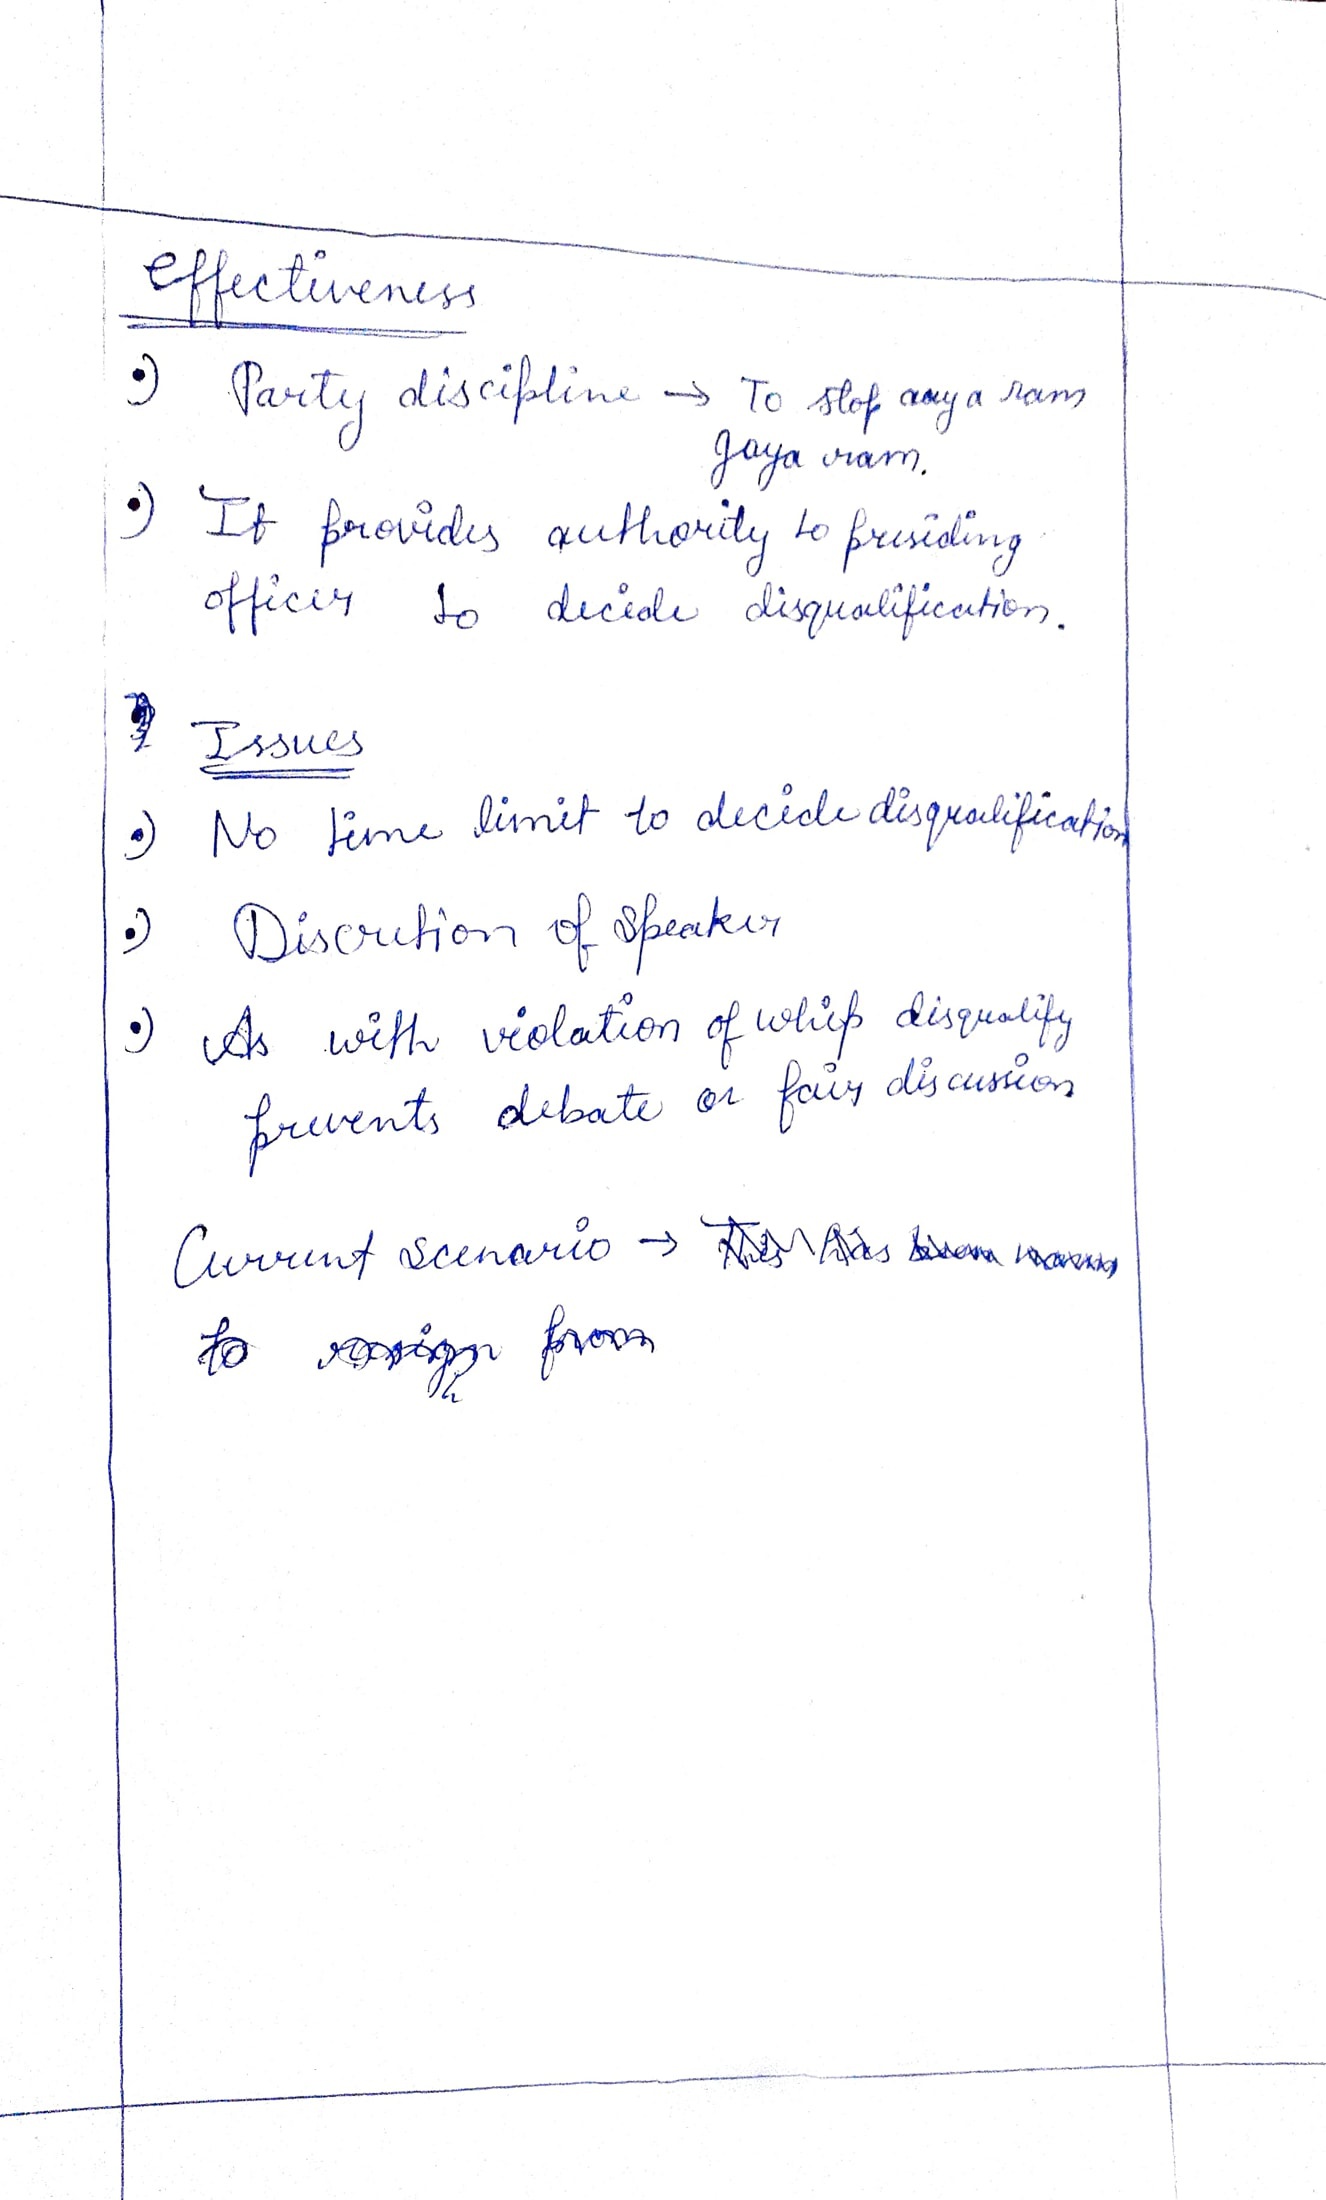 Effectiveness
•) Party discipline → To stop aaya ram
gaya ram.
•) It provides authority to presiding
officer to decide disqualification.
Issues
•) No time limit to decide disqualification
•) Discretion of Speaker
•) As with violation of whip disqualify
prevents debate or fair discussion
Current scenario → This has been
to resign from